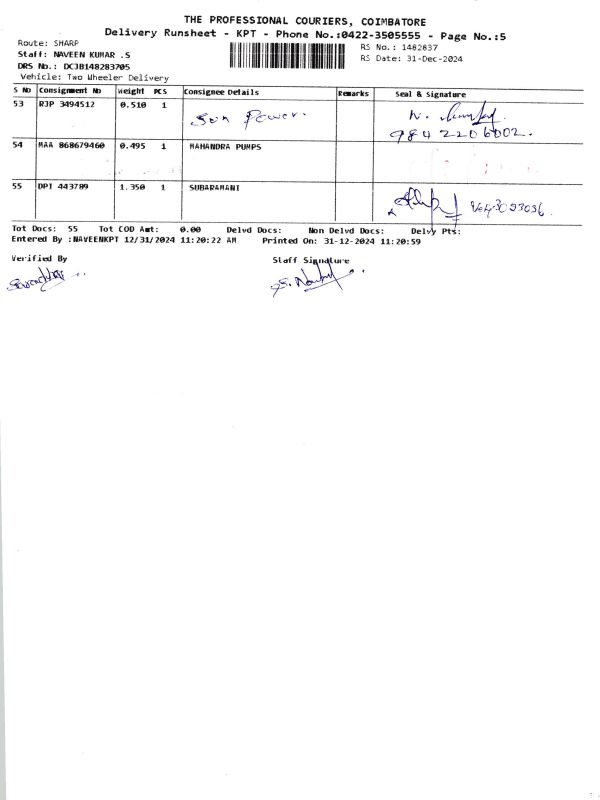 THE PROFESSIONAL COURIERS, COIMBATORE
Delivery Runsheet - KPT - Phone No.:0422-3505555 - Page No.:5
Route: SHARP
Staff: NAVEEN KUMAR .S
DRS No.: DCJB148283705
Vehicle: Two Wheeler Delivery
RS No.: 1482837
RS Date: 31-Dec-2024
S No Consignment No Weight PCS Consignee Details Remarks Seal & Signature
53 RJP 3494512 0.510 1 Sun Power. 9842206002.
54 MAA 868679460 0.495 1 MAHANDRA PUMPS
55 DPI 443789 1.350 1 SUBARAMANI
Tot Docs: 55 Tot COD Amt: 0.00 Delvd Docs: Non Delvd Docs: Delvy Pts:
Entered By :NAVEENKPT 12/31/2024 11:20:22 AM Printed On: 31-12-2024 11:20:59
Verified By Staff Signature